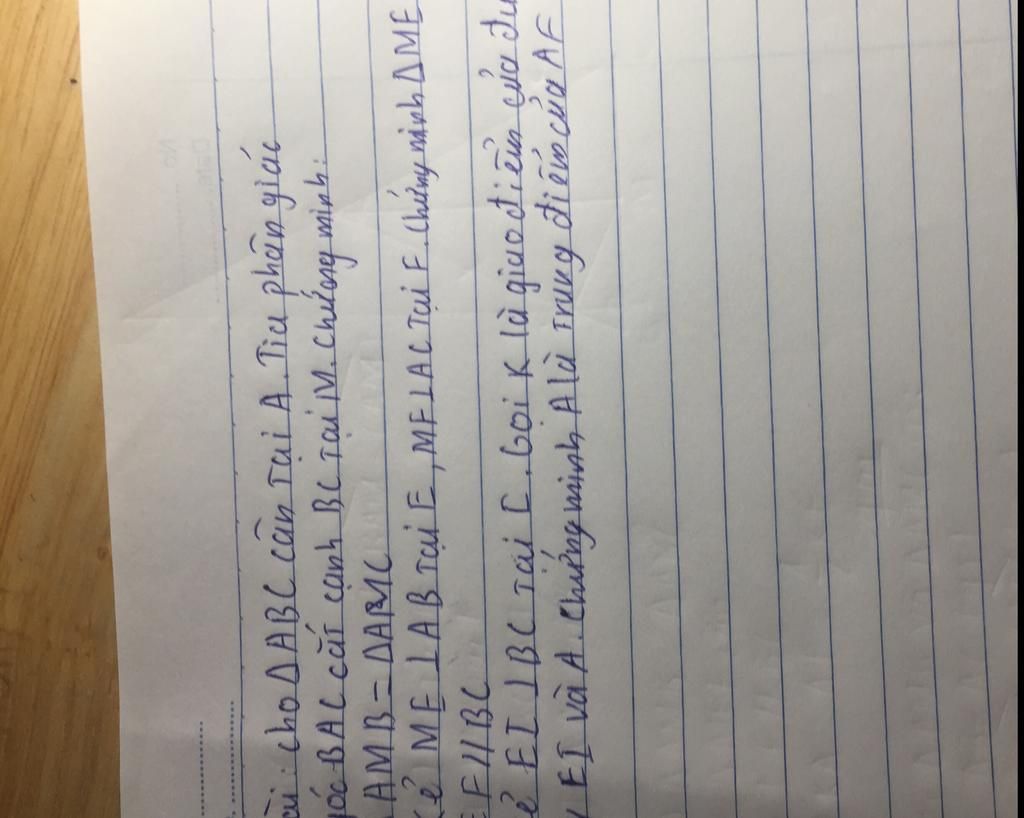 ài: cho ΔABC cân tại A. Tia phân giác
góc BAC cắt cạnh BC tại M. Chứng minh:
AMB = ΔAMC
Kẻ ME ⊥ AB tại E, MF ⊥ AC tại F. Chứng minh ΔME
EF // BC
ẻ EI ⊥ BC tại I. Gọi K là giao điểm của đư
EI và A. Chứng minh A là trung điểm của AF